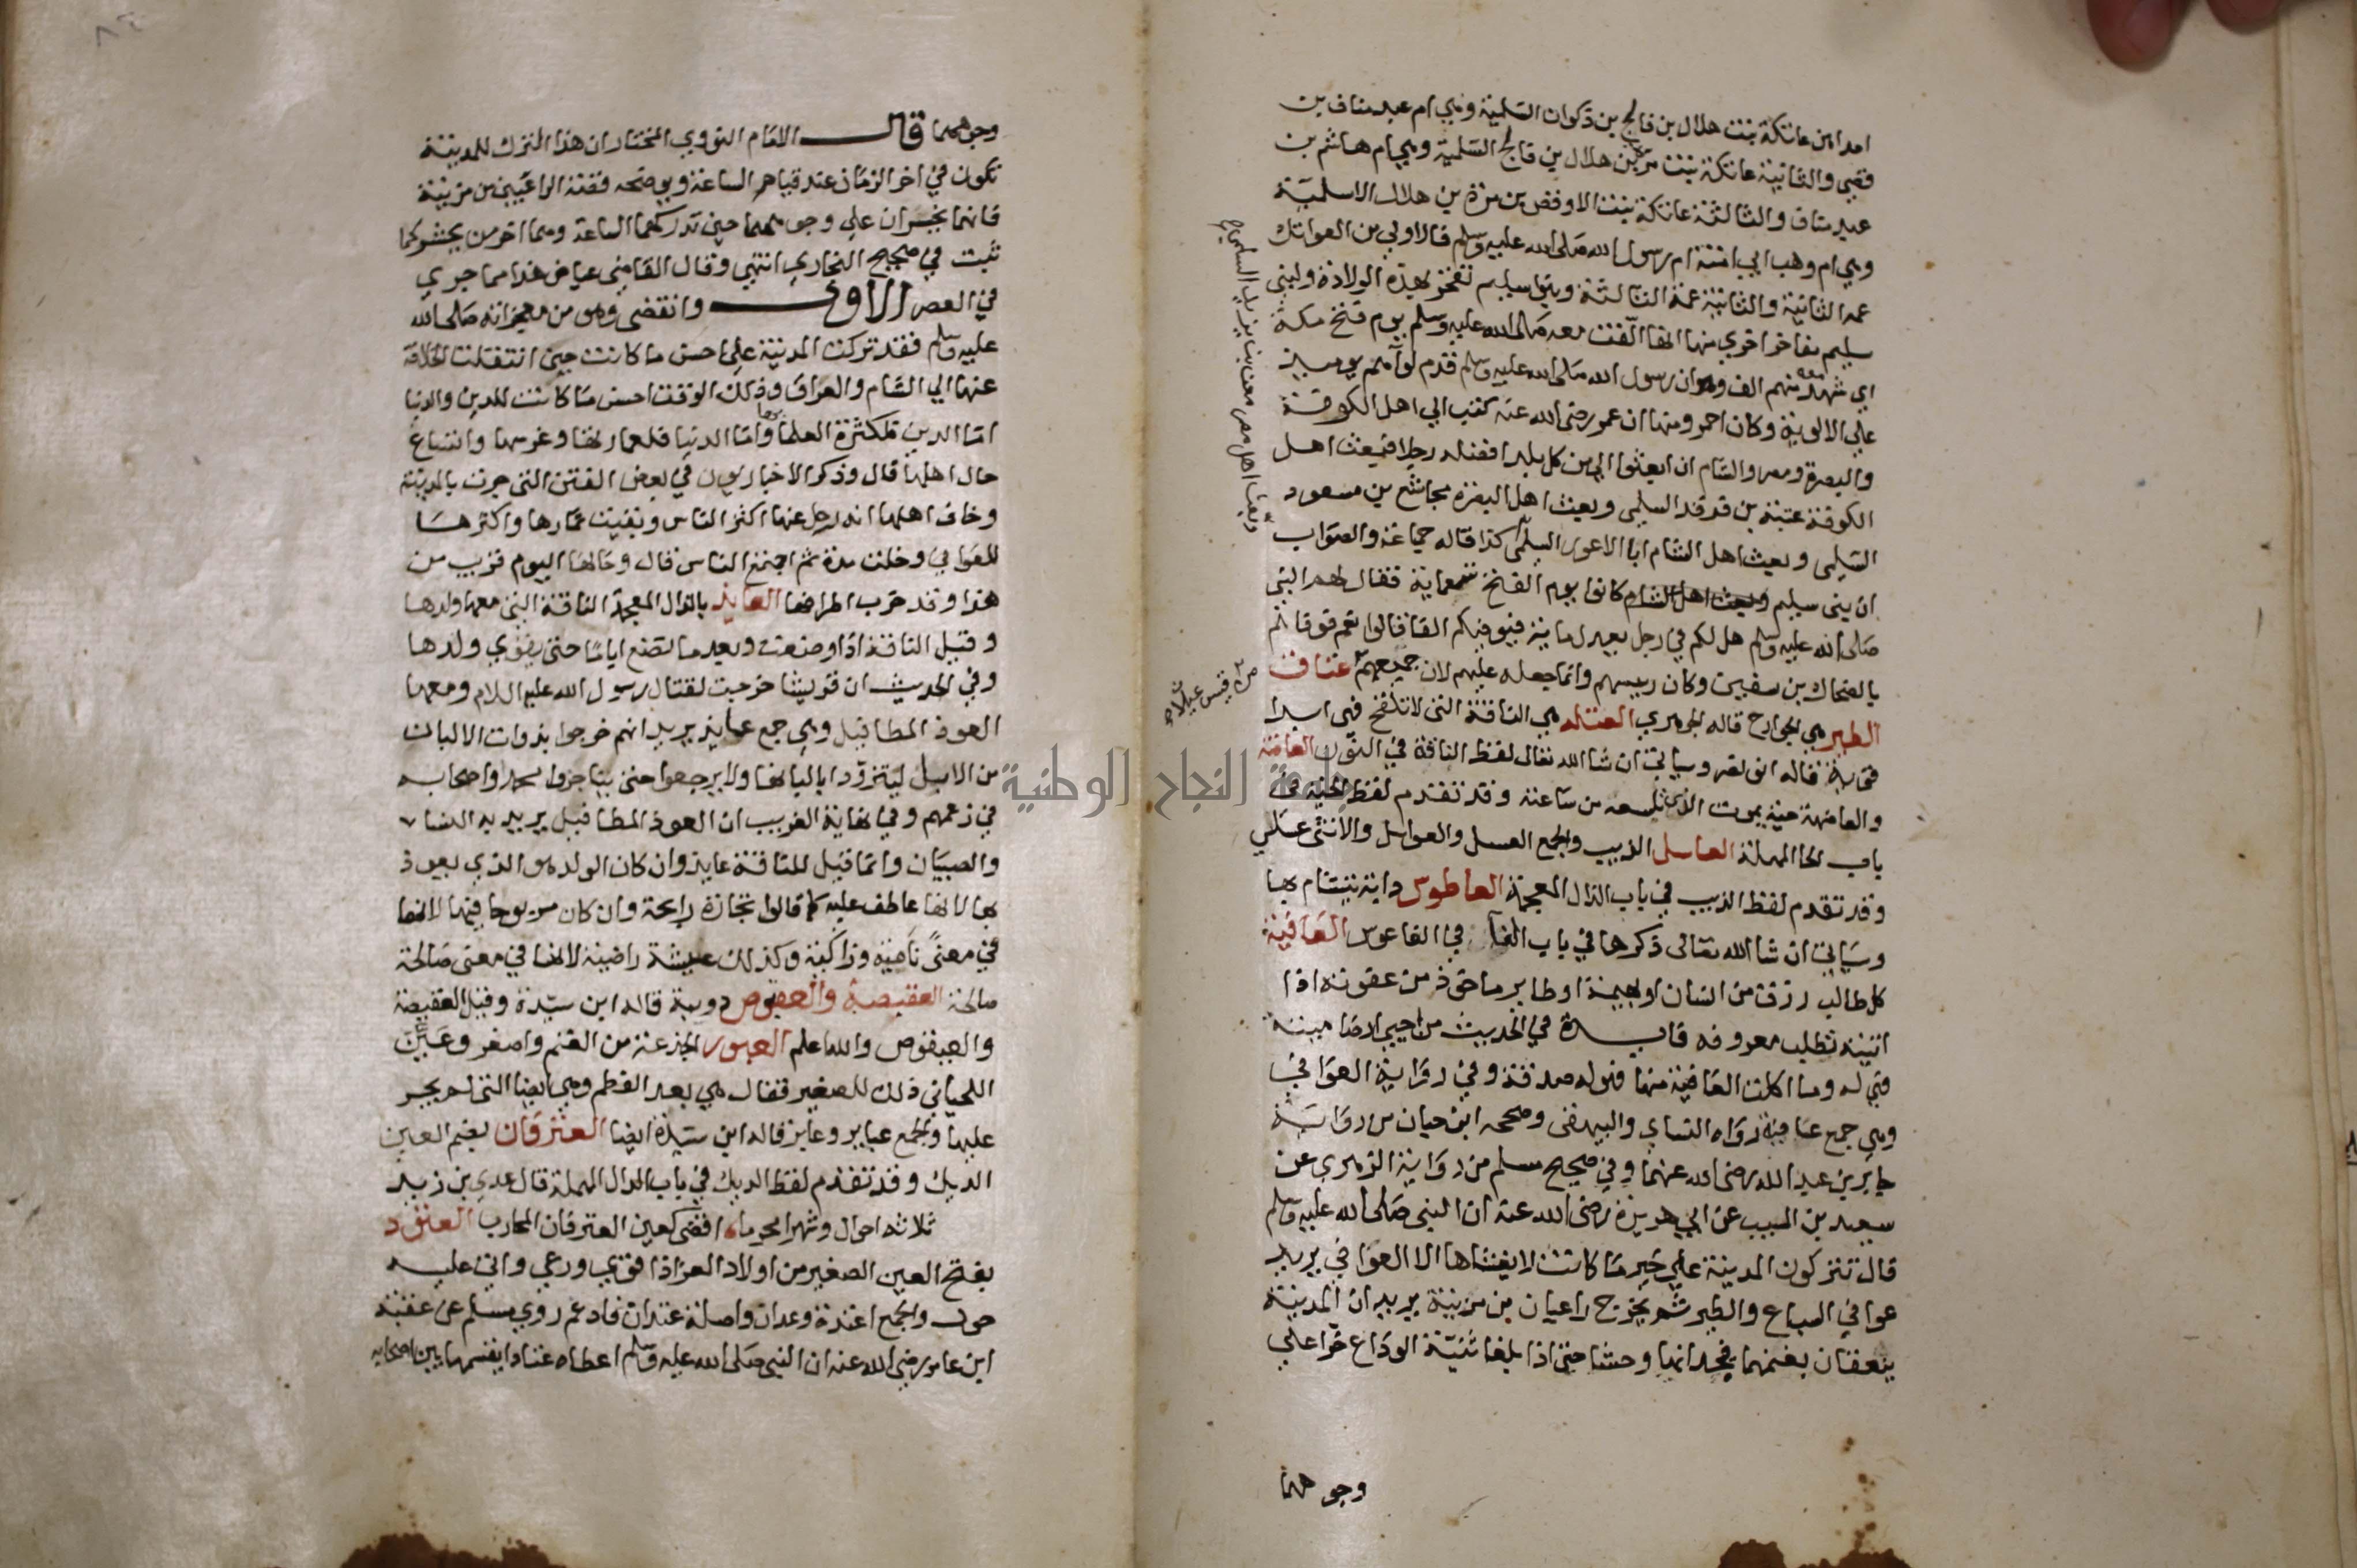 احداهن عاتكة بنت هلال بن فالج بن ذكوان السلمية وهي ام عبد مناف بن
قصي والثانية عاتكة بنت مرة بن هلال بن فالج السلمية وهي ام هاشم بن
عبد مناف والثالثة عاتكة بنت الاوقص بن مرة بن هلال الاسلمية
وهي ام وهب ابي امنة ام رسول الله صلى الله عليه وسلم فالاولي من العواتك
عمه الثانية والثانية عمة الثالثة وبنو سليم تفتخر بهذه الولادة ولبني
سليم مفاخر اخري منها انها الفت معه صلى الله عليه وسلم يوم فتح مكة
اي شهده معه منهم الف وان رسول الله صلى الله عليه وسلم قدم لواهم يوميذ
علي الالوية وكان احمر ومنها ان عمر رضي الله عنه كتب الي اهل الكوفة
والبصرة ومصر والشام ان ابعثوا الي من كل بلد افضله رجلا فبعث اهل
الكوفة عتبة بن فرقد السلمي وبعث اهل البصرة مجاشع بن مسعود
السلمي وبعث اهل الشام ابا الاعور السلمي كذا قاله جماعة والصواب
ان بني سليم كانوا يوم الفتح تسعماية فقال لهم النبي
صلى الله عليه وسلم هل لكم في رجل يعدل ماية فيوفيكم الفا قالوا نعم فوفاهم
بالضحاك بن سفين وكان رييسهم وانما جعله عليهم لان جميعهم عتاق
الطير هي الجوارح قاله الجوهري العتله هي الناقة التي لا تلقح فهي ابدا
قوية قاله ابو نصر وسياتي ان شا الله تعالى لفظ الناقة في النون العاضة
والعاضهة حية يموت الذي تلسعه من ساعته وقد تقدم لفظ الحية في
باب الحا المهملة العاسل الذيب والجمع العسل والعواسل والانثى عسلي
وقد تقدم لفظ الذيب في باب الذال المعجمة العاطوس دابة يتشام بها
وسياتي ان شا الله تعالى ذكرها في باب الفا في الفاعوس العافية
كل طالب رزق من انسان او بهيمة او طاير ماخوذ من عفوته اذا
اتيته تطلب معروفه فايدة في الحديث من احيى ارضا ميتة
فهي له وما اكلت العافية منها فهو له صدقة وفي رواية العوافي
وهي جمع عافية رواه النساي والبيهقي وصححه ابن حبان من رواية
جابر بن عبد الله رضي الله عنهما وفي صحيح مسلم من رواية الزهري عن
سعيد بن المسيب عن ابي هريرة رضي الله عنه ان النبي صلى الله عليه وسلم
قال تتركون المدينة علي خير ما كانت لا يغشاها الا العوافي يريد
عوافي السباع والطير ثم يخرج راعيان من مزينة يريدان المدينة
ينعقان بغنمهما فيجدانها وحشا حتى اذا بلغا ثنية الوداع خرا علي
وجوههما
وبعث اهل مصر معن بن يزيد السلمي صح
من قيس عيلان صح
وجوههما قال الامام النووي المختار ان هذا الترك للمدينة
تكون في اخر الزمان عند قيام الساعة ويوضحه قصة الراعيين من مزينة
فانهما يخران علي وجوههما حين تدركهما الساعة وهما اخر من يحشر كما
ثبت في صحيح البخاري انتهى وقال القاضي عياض هذا مما جري
في العصر الاول وانقضى وهو من معجزاته صلى الله
عليه وسلم فقد تركت المدينة علي احسن ما كانت حين انتقلت الخلافة
عنها الي الشام والعراق وذلك الوقت احسن ما كانت للدين والدنيا
اما الدين فلكثرة العلما بها واما الدنيا فلعمارتها وغرسها واتساع
حال اهلها قال وذكر الاخباريون في بعض الفتن التي جرت بالمدينة
وخاف اهلها انه رحل عنها اكثر الناس وبقيت ثمارها واكثرها
للعوافي وخلت مدة ثم اجتمع الناس قال وحالها اليوم قريب من
هذا وقد خرب اطرافها العايذ بالذال المعجمة الناقة التي معها ولدها
وقيل الناقة اذا وضعت وبعد ما تضع اياما حتى يقوي ولدها
وفي الحديث ان قريشا خرجت لقتال رسول الله عليه السلام ومعها
العوذ المطافيل وهي جمع عايذ يريد انهم خرجوا بذوات الالبان
من الابل ليتزودوا بالبانها ولا يرجعوا حتى يناجزوا محمدا واصحابه
في زعمهم وفي نهاية الغريب ان العوذ المطافيل يريد به النسا
والصبيان وانما قيل للناقة عايذ وان كان الولد هو الذي يعوذ
بها لانها عاطف عليه كما قالوا تجارة رابحة وان كان مربوحا فيها لانها
في معنى نامية وزاكية وكذلك عيشة راضية لانها في معنى صالحة
صالحة العقيصة والعبقوص دويبة قاله ابن سيدة وقيل العقيصة
والعبقوص والله اعلم العبور الجذعة من الغنم واصغر وعين
اللحياني ذلك للصغير فقال هي بعد الفطم وهي ايضا التي لم يجز
عليها والجمع عباير وعابر قاله ابن سيدة ايضا العترفان بضم العين
الديك وقد تقدم لفظ الديك في باب الدال المهملة قال عدي بن زيد
ثلاثه احوال وشهرا محرما افضى كعين العترفان المحارب العتود
بفتح العين الصغير من اولاد المعز اذا قوي ورعي واتى عليه
حول والجمع اعتدة وعدان واصله عتدان فادغم روي مسلم عن عقبة
ابن عامر رضي الله عنه ان النبي صلى الله عليه وسلم اعطاه غنما يقسمها بين اصحابه
جامعة النجاح الوطنية